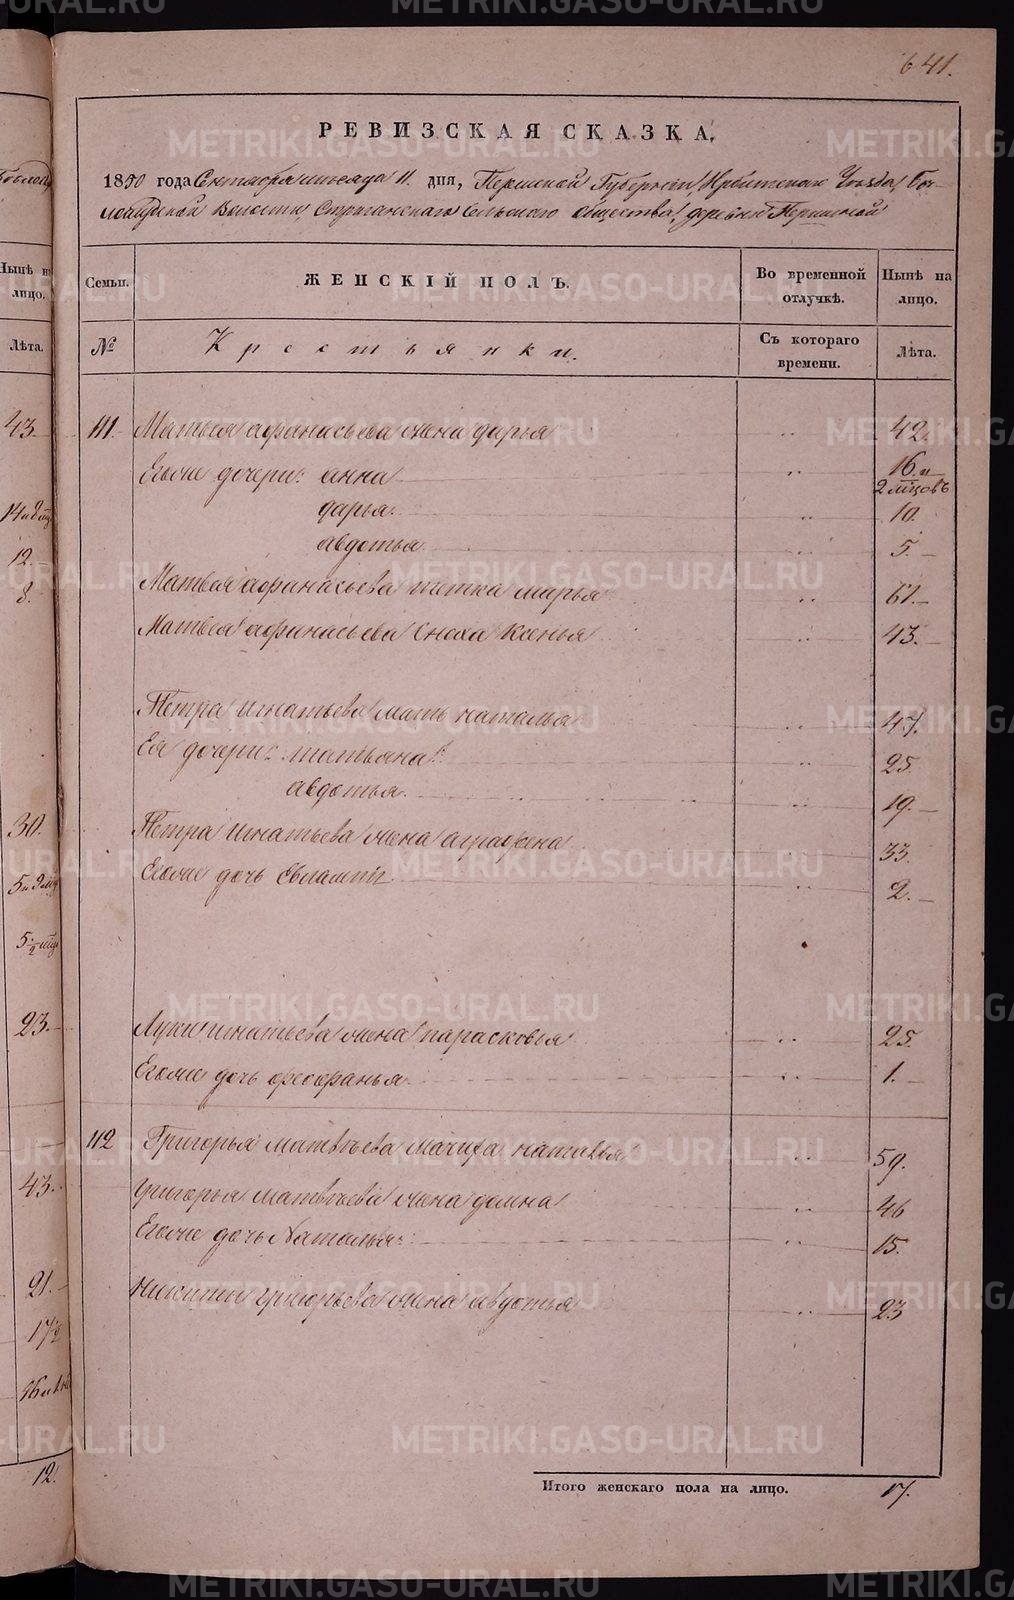 641.
РЕВИЗСКАЯ СКАЗКА.
1850 года Сентября месяца 11. дня, Пермской Губернии Ирбитскаго Уезда
Волости, Стриганскаго Сельскаго общества, деревни Першиной
Семьи.
ЖЕНСКІЙ ПОЛЪ.
Во временной отлучкѣ.
Нынѣ на лицо.
№
Крестьянки.
Съ котораго времени.
Лѣта.
111. Матвея Афанасьева жена дарья .. 42.
Егоже дочери: анна .. 16. и 2 мѣсцовъ
дарья. .. 10.
авдотья. .. 5.
Матвея Афанасьева тетка марья .. 67.
Матвея Афанасьева Сноха Ксенья .. 43.
Петра игнатьева мать наталья .. 47.
Ея дочери: татьяна .. 25.
авдотья. .. 19.
Петра игнатьева жена аграфена .. 33.
Егоже дочь Евлампія .. 2.
Луки игнатьева жена парасковья .. 25.
Егоже дочь .. 1.
112 Григорья матвѣева мачиха наталья .. 59.
Григорья матвѣева жена домна .. 46
Егоже дочь Наталья .. 15.
Никиты григорьева жена авдотья .. 23
Итого женскаго пола на лицо. 17.
Нынѣ на лицо.
Лѣта.
43.
14 и 8 мѣ
12.
8.
30.
23.
43.
21.
12.
METRIKI.GASO-URAL.RU